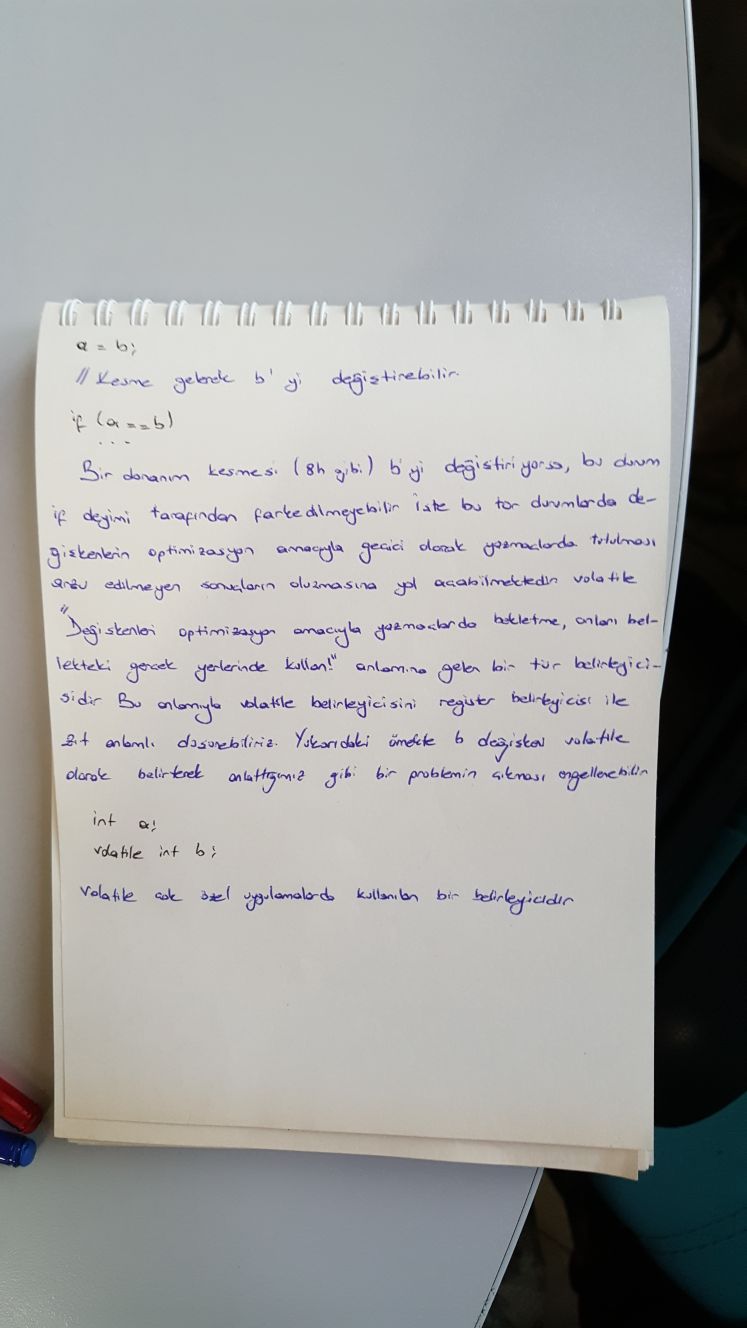 a = b;
// Kesme gelerek b' yi değiştirebilir.
if (a == b)
...
Bir donanım kesmesi (8h gibi) b'yi değiştiriyorsa, bu durum
if deyimi tarafından farkedilmeyebilir İşte bu tür durumlarda de-
ğişkenlerin optimizasyon amacıyla geçici olarak yazmaçlarda tutulması
arzu edilmeyen sonuçların oluşmasına yol açabilmektedir volatile
"Değişkenleri optimizasyon amacıyla yazmaçlarda bekletme, onları bel-
lekteki gerçek yerlerinde kullan!" anlamına gelen bir tür belirleyici-
sidir Bu anlamıyla volatile belirleyicisini register belirleyicisi ile
zıt anlamlı düşünebiliriz. Yukarıdaki örnekte b değişkeni volatile
olarak belirterek anlattığımız gibi bir problemin çıkması engellenebilir
int a;
volatile int b;
volatile çok özel uygulamalarda kullanılan bir belirleyicidir